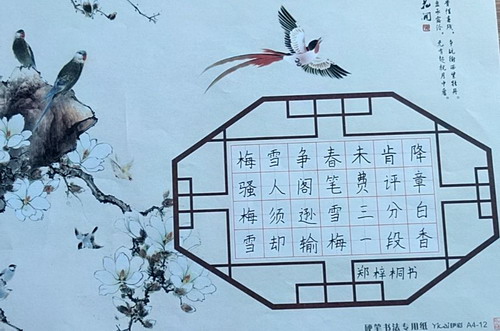 梅雪争春未肯降
骚人阁笔费评章
梅须逊雪三分白
雪却输梅一段香
郑梓桐书
硬笔书法专用纸 A4-12